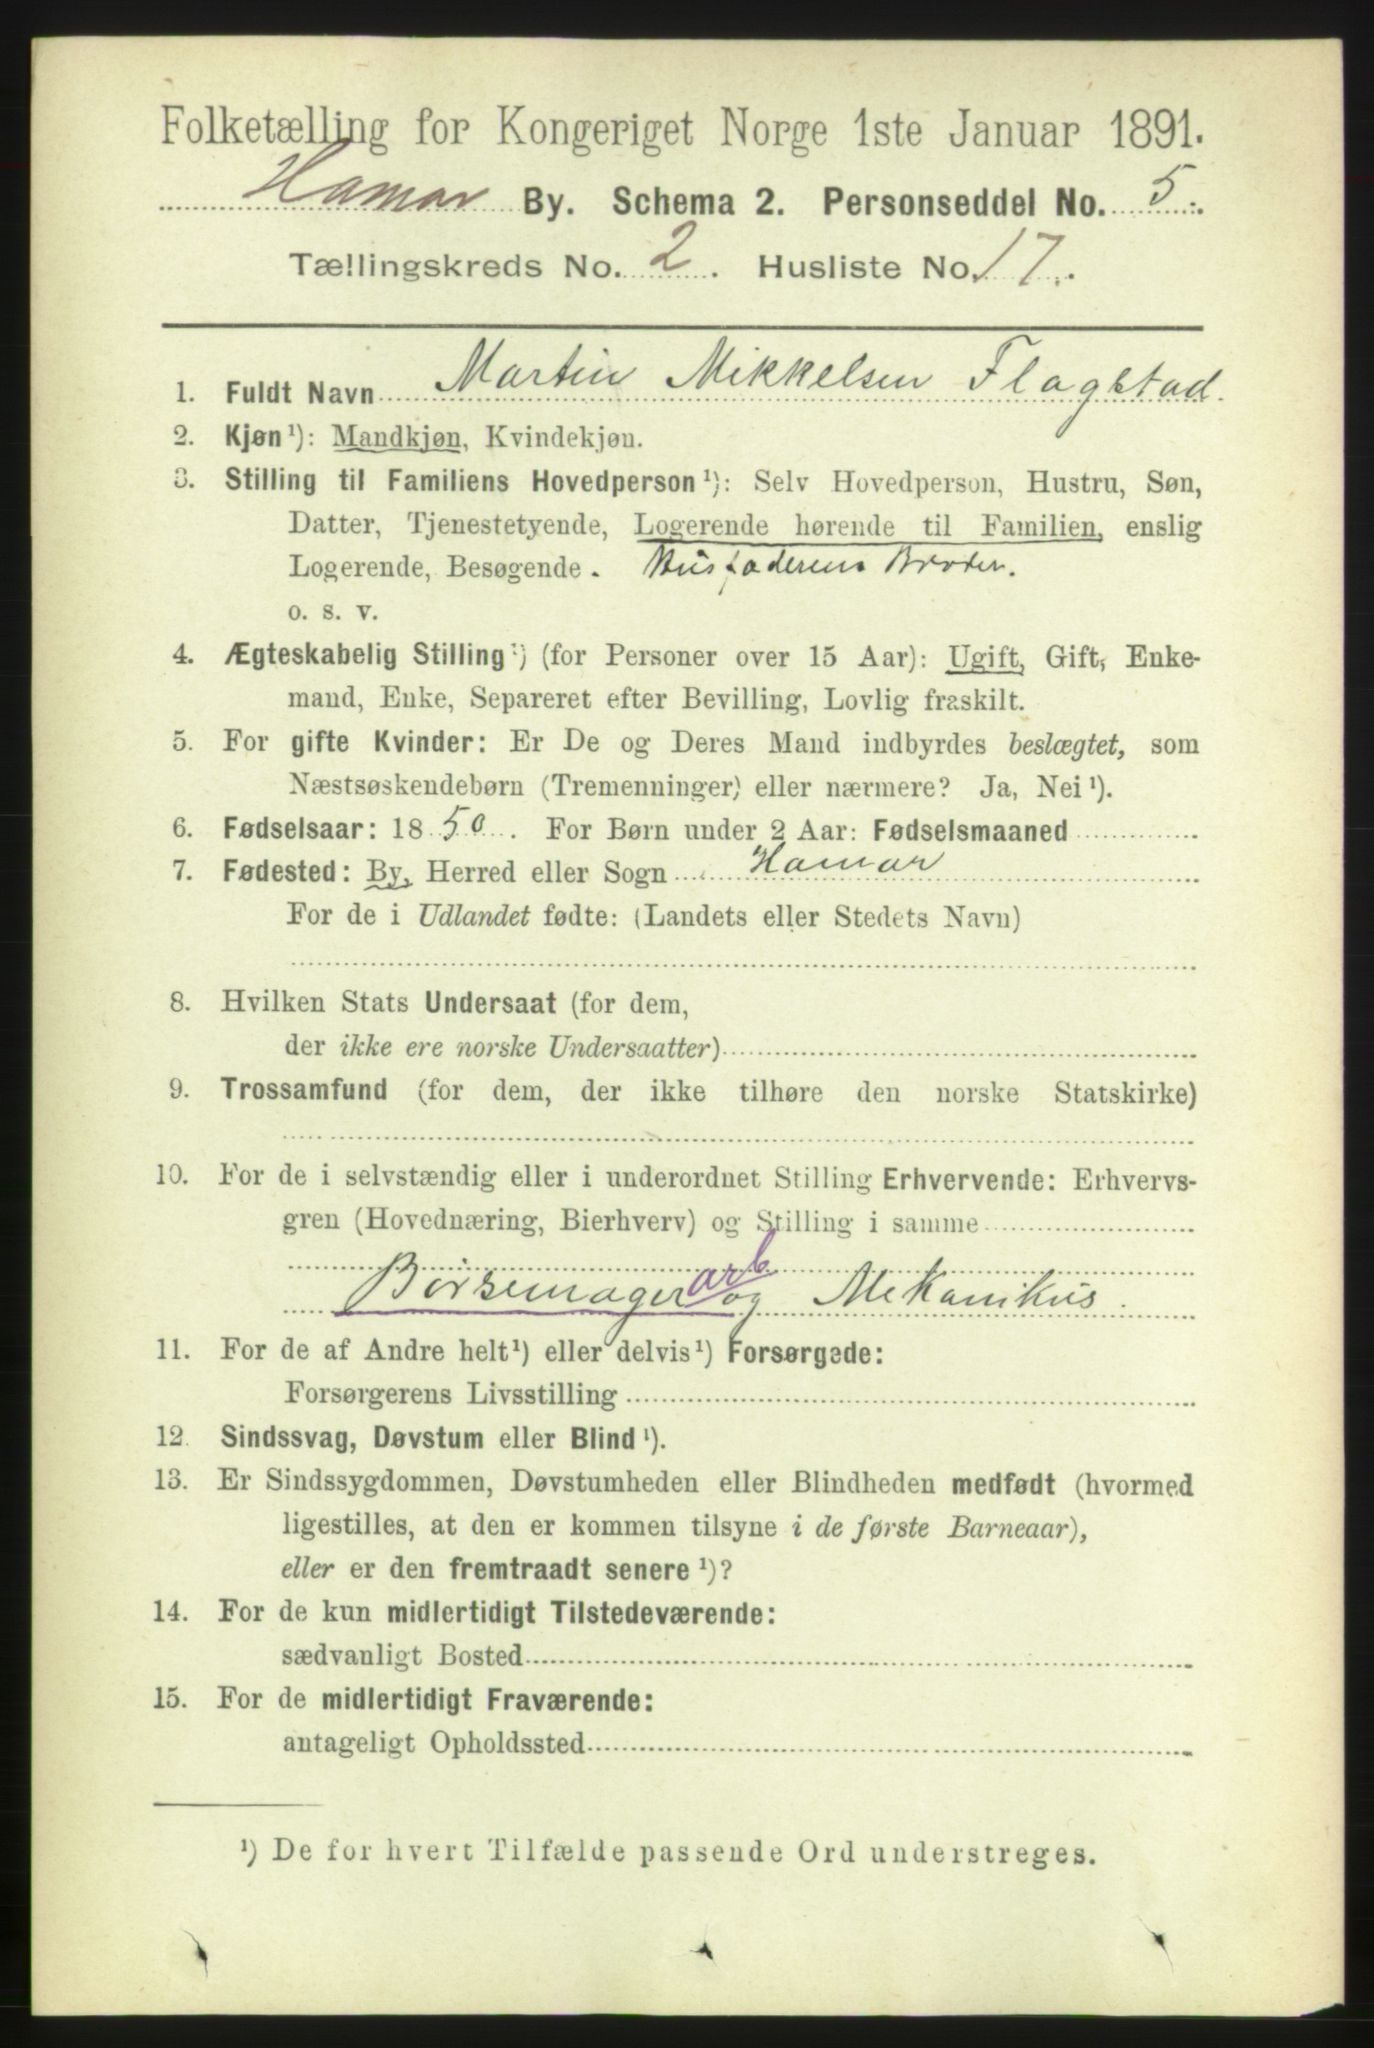 Folketælling for Kongeriget Norge 1ste Januar 1891.
Hamar By. Schema 2. Personseddel No. 5.
Tællingskreds No. 2. Husliste No. 17.
1. Fuldt Navn Martin Mikkelsen Flagstad.
2. Kjøn¹): Mandkjøn, Kvindekjøn.
3. Stilling til Familiens Hovedperson¹): Selv Hovedperson, Hustru, Søn,
Datter, Tjenestetyende, Logerende hørende til Familien, enslig
Logerende, Besøgende. Husfaderens Broder.
o. s. v.
4. Ægteskabelig Stilling¹) (for Personer over 15 Aar): Ugift, Gift, Enke-
mand, Enke, Separeret efter Bevilling, Lovlig fraskilt.
5. For gifte Kvinder: Er De og Deres Mand indbyrdes beslægtet, som
Næstsøskendebørn (Tremenninger) eller nærmere? Ja, Nei¹).
6. Fødselsaar: 1850. For Børn under 2 Aar: Fødselsmaaned
7. Fødested: By, Herred eller Sogn Hamar
For de i Udlandet fødte: (Landets eller Stedets Navn)
8. Hvilken Stats Undersaat (for dem,
der ikke ere norske Undersaatter)
9. Trossamfund (for dem, der ikke tilhøre den norske Statskirke)
10. For de i selvstændig eller i underordnet Stilling Erhvervende: Erhvervs-
gren (Hovednæring, Bierhverv) og Stilling i samme
arb
Børsemager og Mekanikus.
11. For de af Andre helt¹) eller delvis¹) Forsørgede:
Forsørgerens Livsstilling
12. Sindssvag, Døvstum eller Blind¹).
13. Er Sindssygdommen, Døvstumheden eller Blindheden medfødt (hvormed
ligestilles, at den er kommen tilsyne i de første Barneaar),
eller er den fremtraadt senere¹)?
14. For de kun midlertidigt Tilstedeværende:
sædvanligt Bosted
15. For de midlertidigt Fraværende:
antageligt Opholdssted
¹) De for hvert Tilfælde passende Ord understreges.